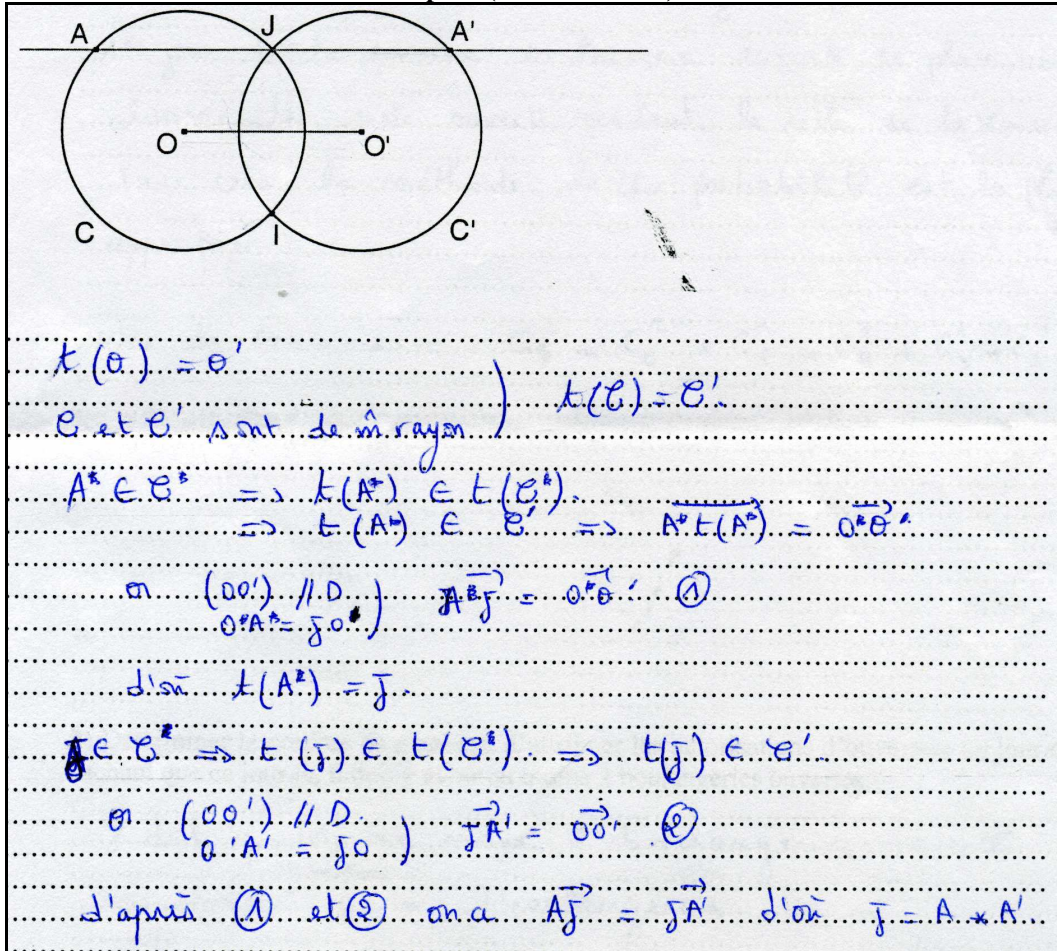 A J A'
O O'
C I C'
t(O) = O'
C et C' sont de m̂ rayon ) t(C) = C'.
A* ∈ C* => t(A*) ∈ t(C*).
=> t(A*) ∈ C' => A* t(A*) = O*O'
or (OO') // D ) A*J = O*O' ①
O*A* = JO'
d'où t(A*) = J.
J ∈ C* => t(J) ∈ t(C*) => t(J) ∈ C'.
or (OO') // D. ) JA' = OO' ②
O'A' = JO
d'après ① et ② on a AJ = JA' d'où J = A * A'